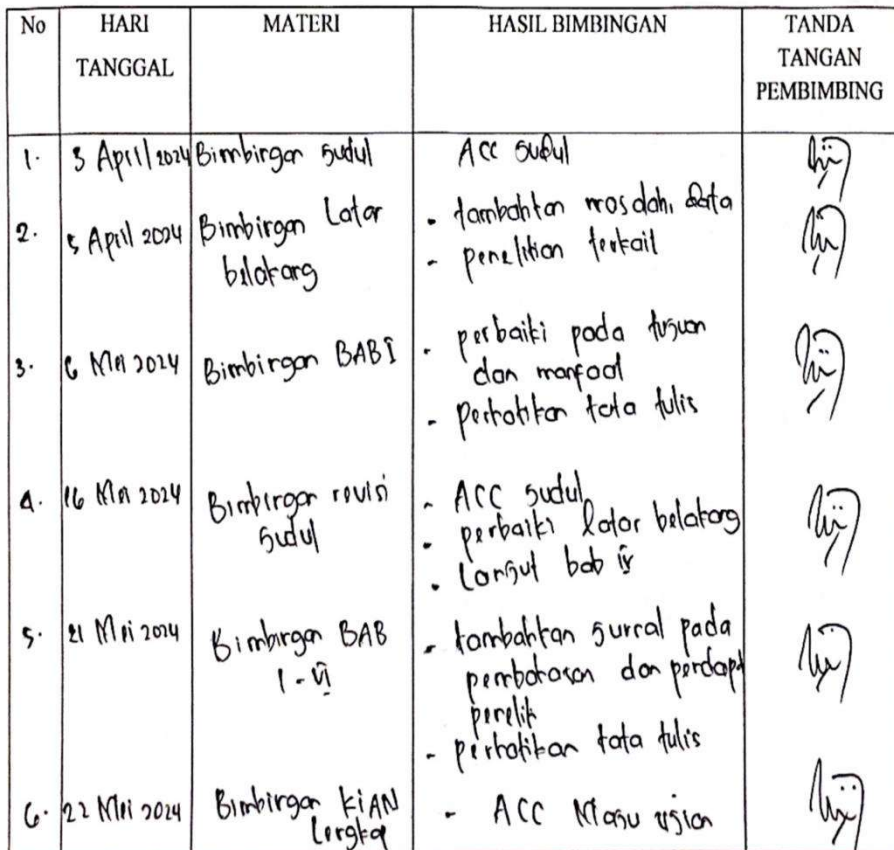 No HARI MATERI HASIL BIMBINGAN TANDA
TANGGAL TANGAN
PEMBIMBING
1. 3 April 2024 Bimbingan Judul ACC Judul
2. 5 April 2024 Bimbingan Latar - tambahkan masalah, data
belakang - penelitian terkait
3. 6 Mei 2024 Bimbingan BAB I - perbaiki pada tujuan
dan manfaat
- perhatikan tata tulis
4. 16 Mei 2024 Bimbingan revisi - ACC Judul
Judul - perbaiki latar belakang
- Lanjut bab iv
5. 21 Mei 2024 Bimbingan BAB - tambahkan jurnal pada
I - VI pembahasan dan pendapat
penelit
- perhatikan tata tulis
6. 22 Mei 2024 Bimbingan KIAN - ACC Maju ujian
Lengkap